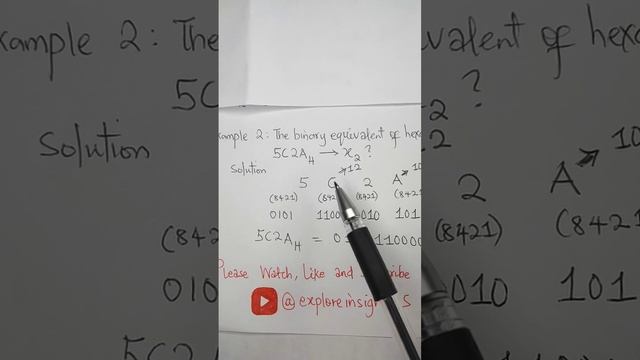 xample 2: The binary equivalent of hexa
5C2A_H → x_2 ?
Solution
5 C → 12 2 A → 10
(8421) (842 (8421) (8421
0101 1100 010 101
5C2A_H = 0 110000
Please Watch, Like and S cribe
@exploreinsig s